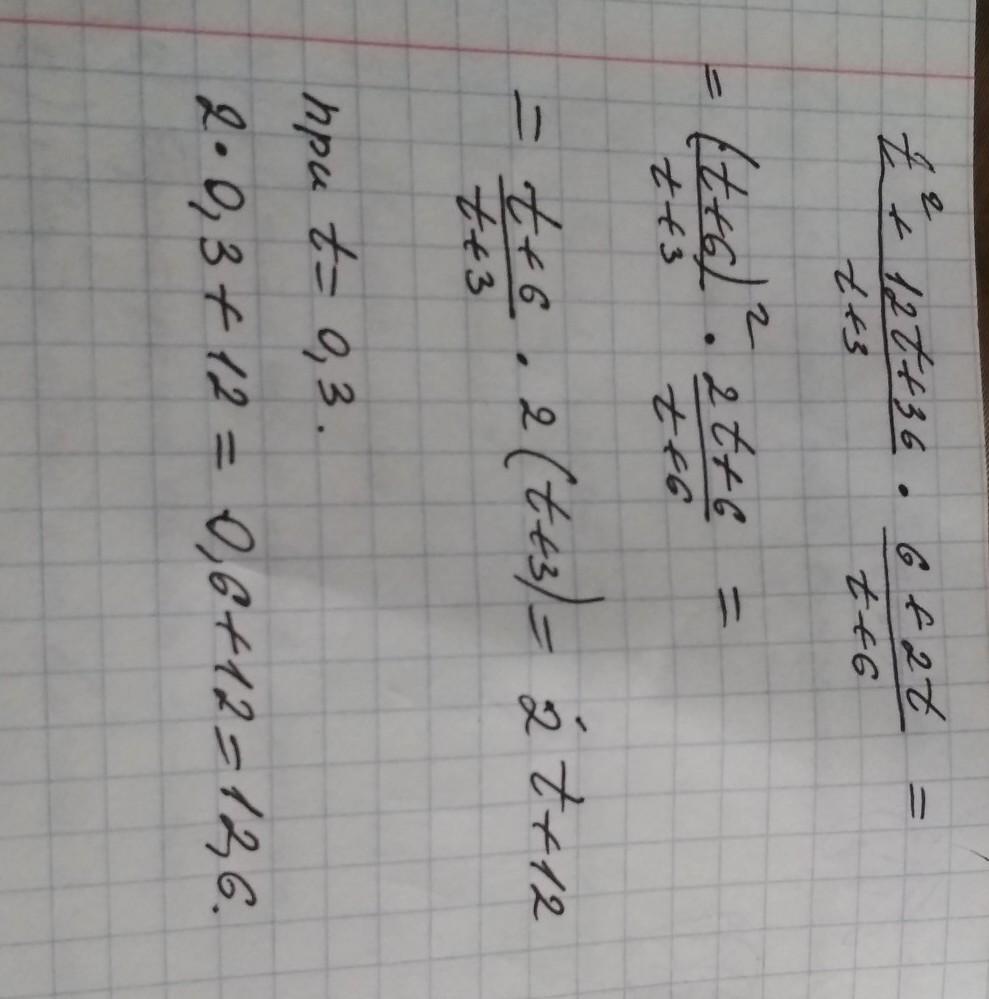 (t² + 12t + 36)/(t+3) · (6 + 2t)/(t+6) =
= (t+6)²/(t+3) · (2t+6)/(t+6) =
= (t+6)/(t+3) · 2(t+3) = 2t+12
при t = 0,3.
2·0,3+12 = 0,6+12 = 12,6.